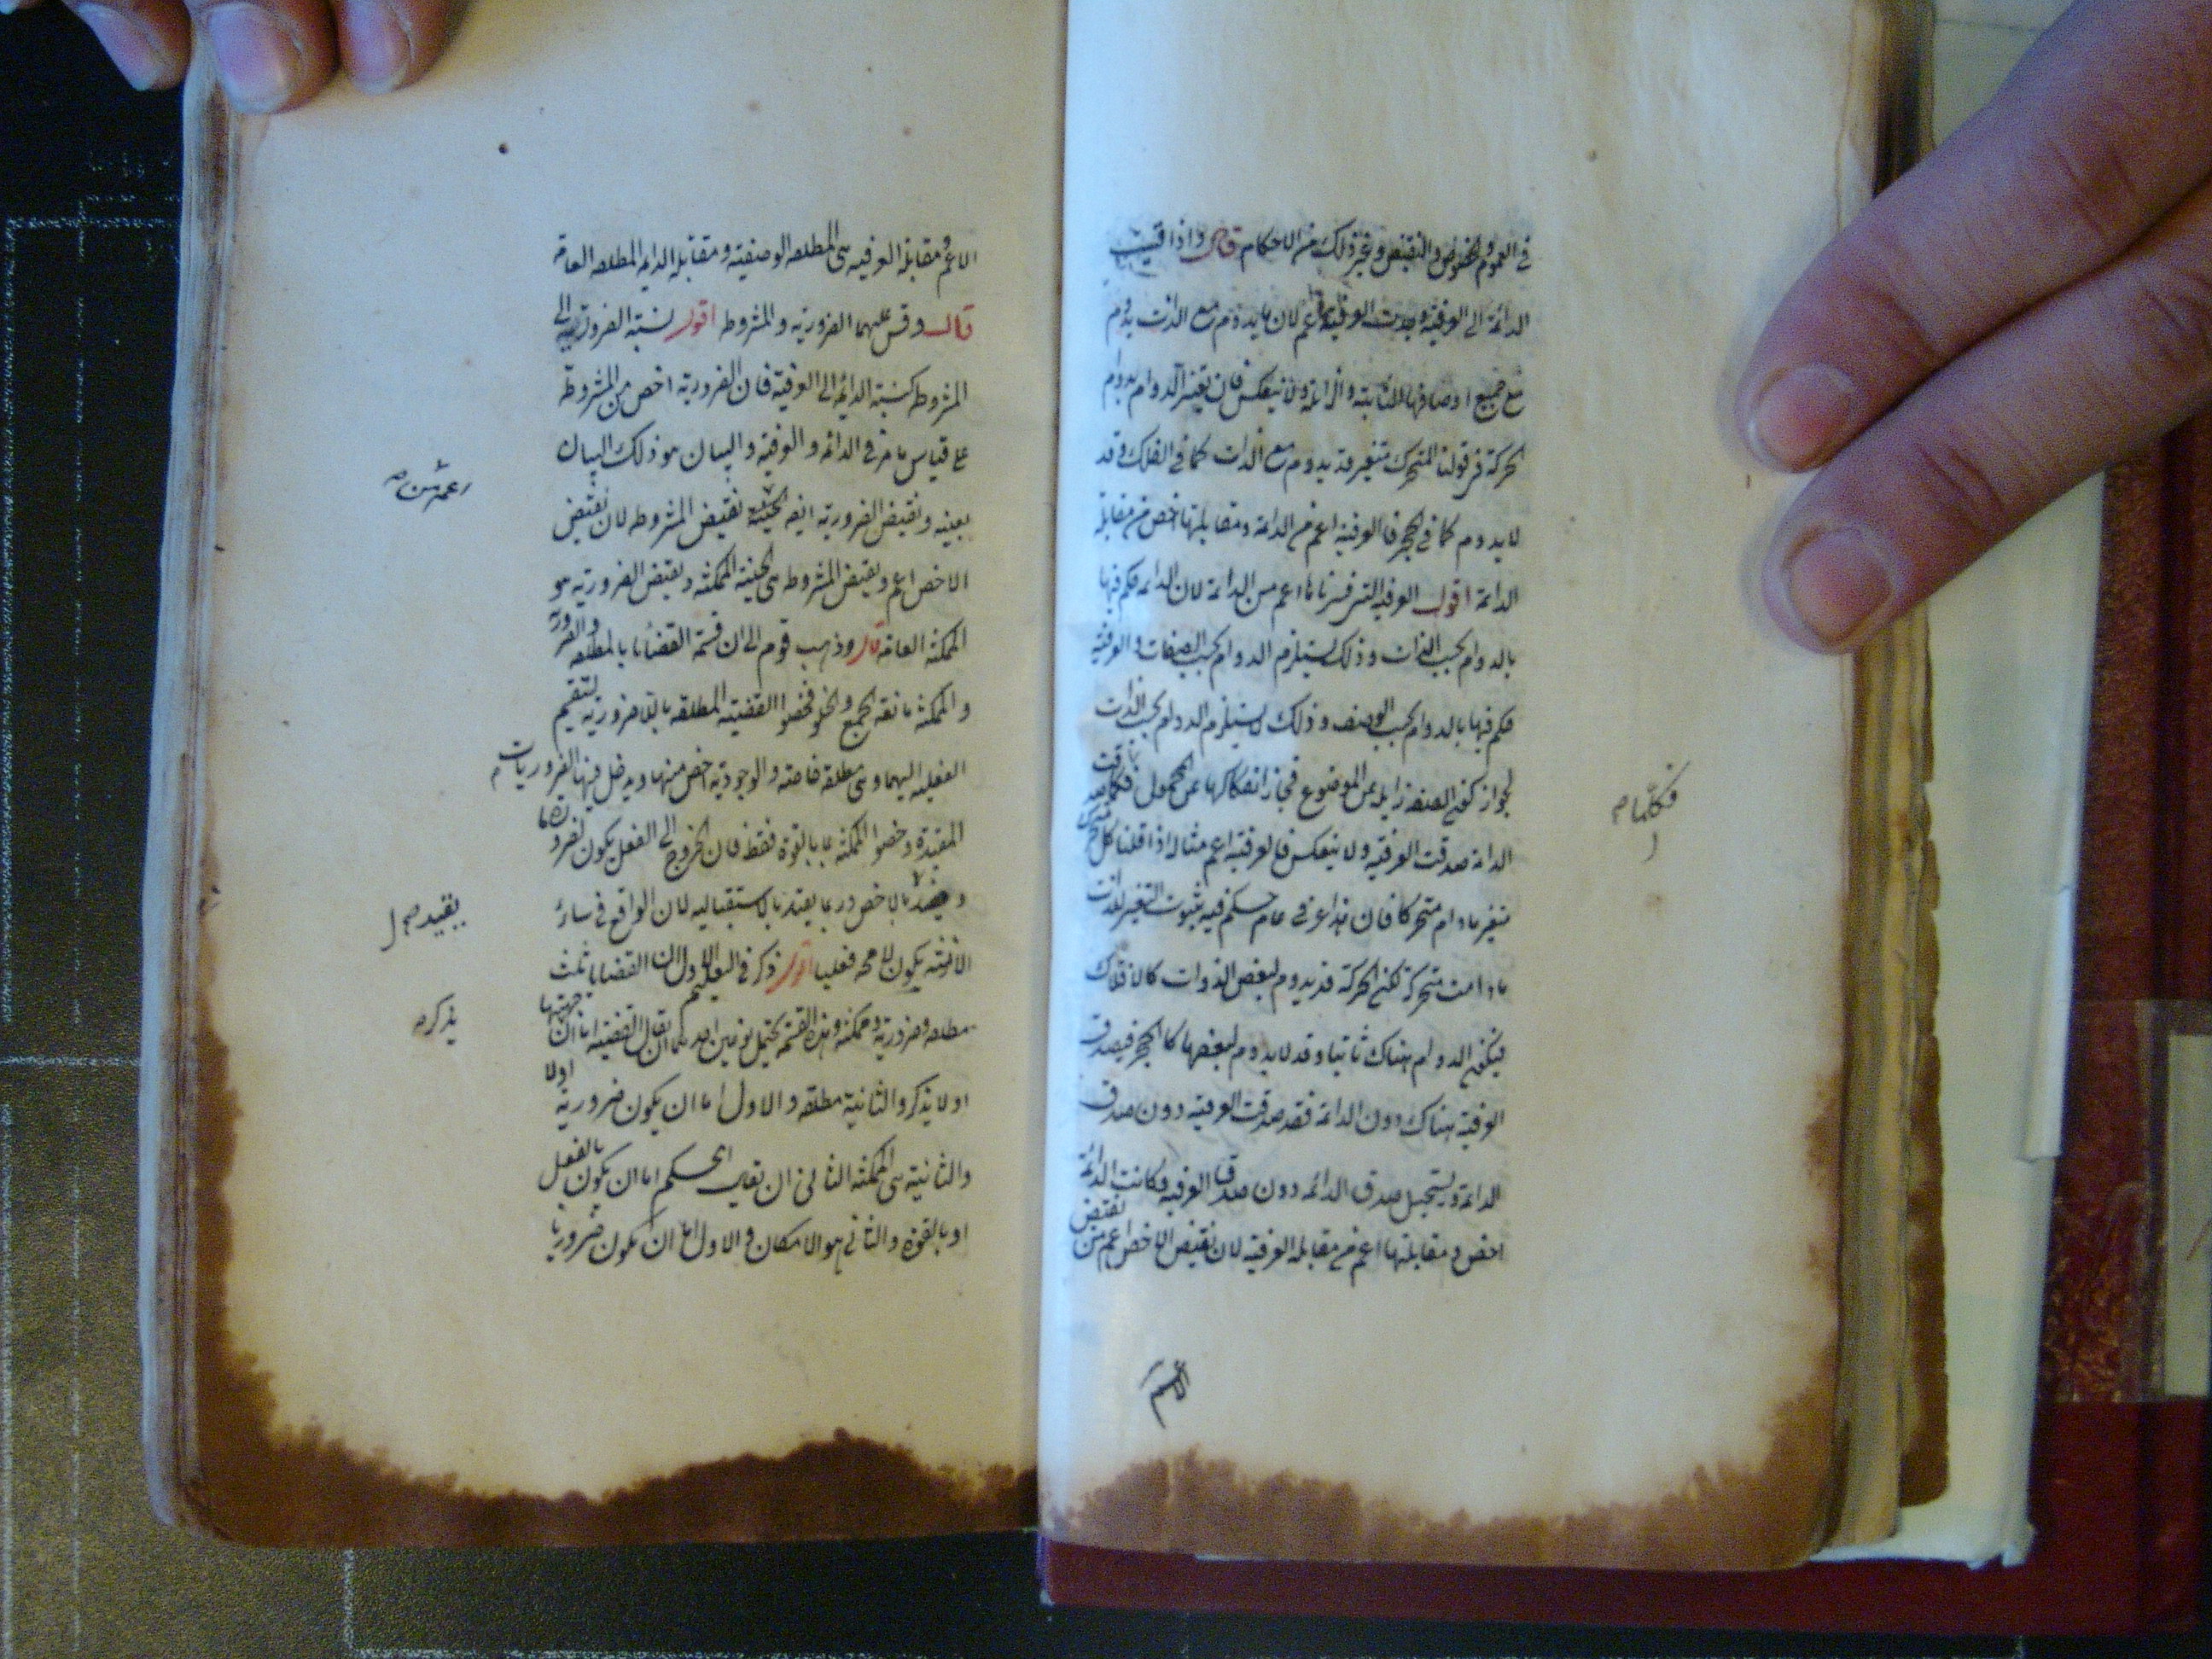 في العموم والخصوص والنقيض وغير ذلك من الاحكام قال واذا قيست
الدائمة الى العرفية وجدت العرفية اعم لان ما يدوم مع الذات يدوم
مع جميع اوصافها الثابتة والزائلة ولا ينعكس فان تغير الدوام بدوام
الحركة في قولنا المتحرك متغير قد يدوم مع الذات كما في الفلك وقد
لا يدوم كما في الحجر فالعرفية اعم من الدائمة ومقابلتها اخص من مقابلة
الدائمة اقول العرفية التي فسرناها اعم من الدائمة لان الدائمة حكم فيها
بالدوام بحسب الذات وذلك يستلزم الدوام بحسب الصفات والعرفية
حكم فيها بالدوام بحسب الوصف وذلك لا يستلزم الدوام بحسب الذات
لجواز كون الصفة زايلة عن الموضوع فجاز انفكاكها عن المحمول فكلما صدقت
فكلما
الدائمة صدقت العرفية ولا ينعكس فالعرفية اعم مثاله اذا قلنا كل متحرك
متغير مادام متحركا فان هذا عرفي عام حكم فيه بثبوت التغير للذات
مادامت متحركة لكن الحركة قد يدوم لبعض الذوات كالافلاك
فيكون الدوام هناك ثابتا وقد لا يدوم لبعضها كالحجر فيصدق
العرفية هناك دون الدائمة فقد صدقت العرفية دون صدق
الدائمة ويستحيل صدق الدائمة دون صدق العرفية فكانت الدائمة
اخص ومقابلتها اعم من مقابلة العرفية لان نقيض الاخص اعم من نقيض
الاعم ومقابلة العرفية هي المطلقة الوصفية ومقابلة الدايمة المطلقة العامة
قال وقس عليهما الضرورية والمشروطة اقول نسبة الضرورية الى
المشروطة كنسبة الدايمة الى العرفية فان الضرورية اخص من المشروطة
على قياس ما مر في الدائمة والعرفية والبيان هو ذلك البيان
بعينه ونقيض الضرورية ايضا نقيض المشروطة لان نقيض
اعم من
الاخص اعم ونقيض المشروطة هي الحينية الممكنة ونقيض الضرورية هو
الممكنة العامة قال وذهب قوم الى ان قسمة القضايا بالمطلقة والضرورة
والممكنة مانعة الجمع والخلو فخصوا القضية المطلقة باللاضرورية لتقسيم
الفعلية اليهما وهي مطلقة خاصة والوجودية اخص منها ويدخل فيها الضروريات
المقيدة وخصوا الممكنة بما بالقوة فقط فان الخروج الى الفعل يكون لضرورة ما
بالاخص وربما يقيد بالاستقبالية لان الواقع في سائر
بقيد
الازمنة يكون لا محة فعليا اقول ذكر في التعليم الاول ان القضايا ثلث
مطلقة وضرورية وممكنة وهذه القسمة يحتمل نوعين احدهما ان يقال القضية اما ان جهتها
يذكر
اولا يذكر والثانية مطلقة والاول اما ان يكون ضرورية اولا
والثانية هي الممكنة الثاني ان يقال الحكم اما ان يكون بالفعل
او بالقوة والثاني هو الامكان والاول اما ان يكون ضروريا